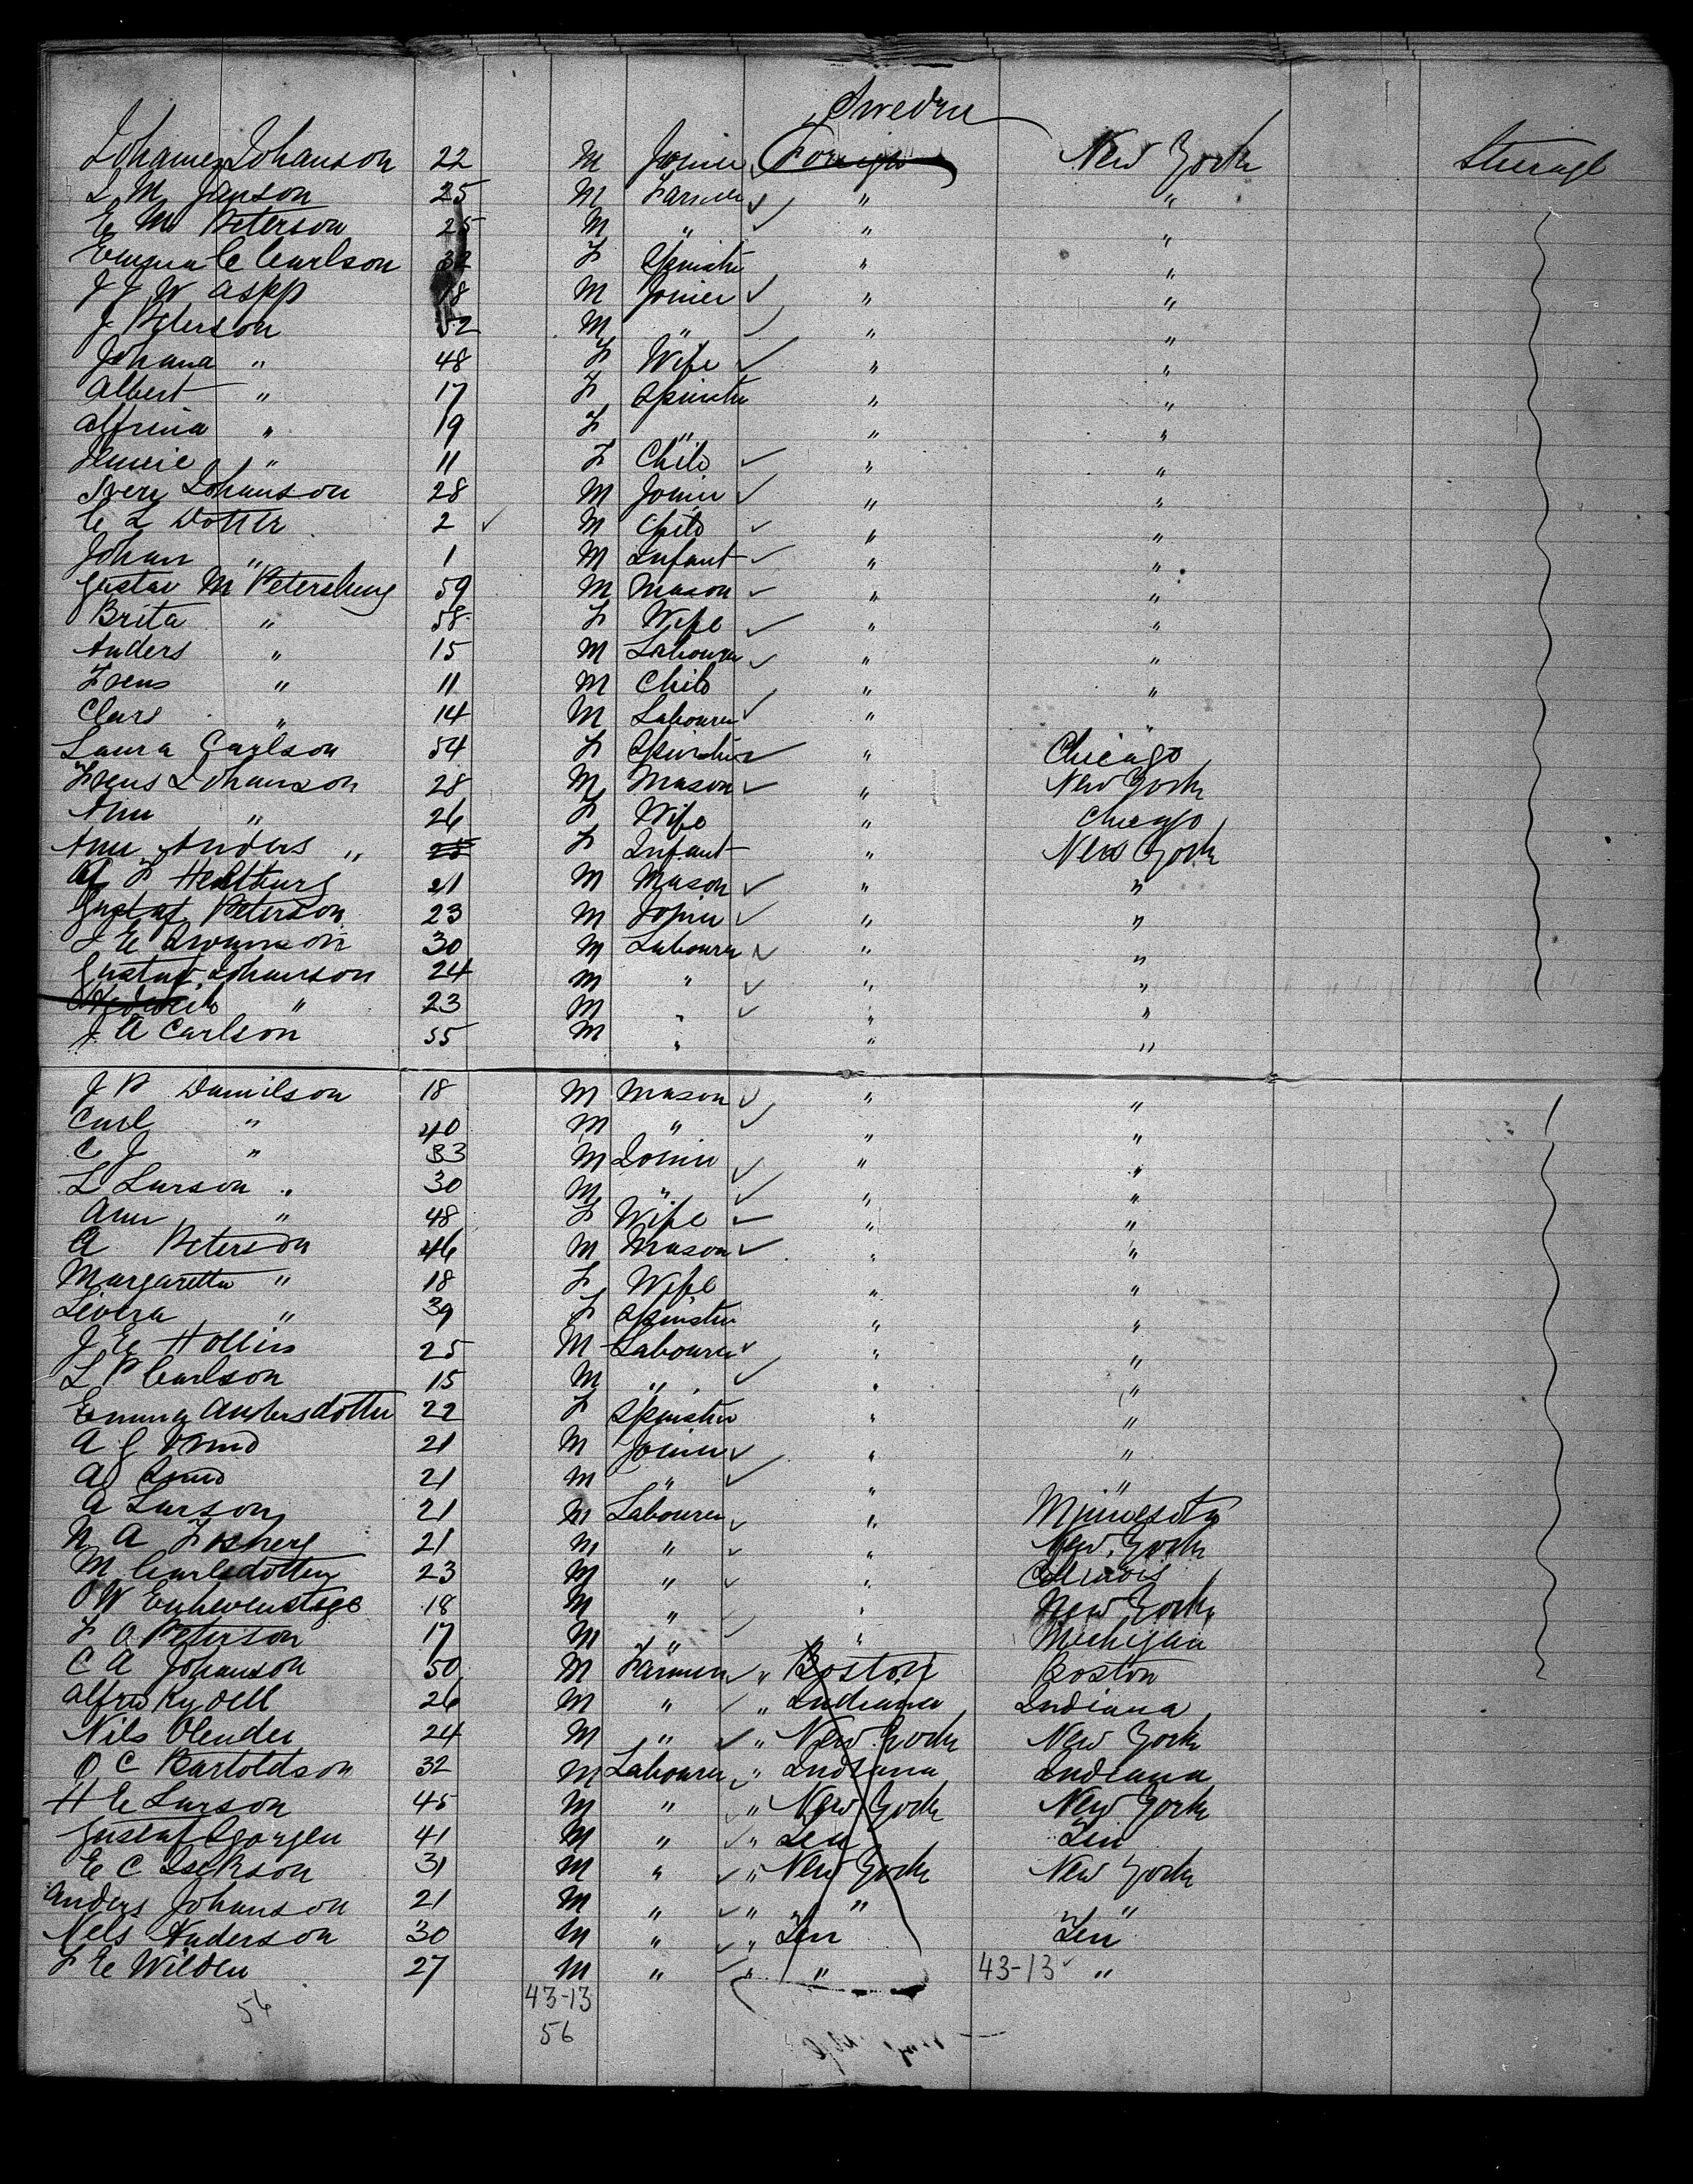 Sweden
Johannes Johanson 22 M Joiner Foreign New York Steerage
L M Janson 25 M Farmer " "
E M Peterson 25 M " " "
Emma C Carlson 32 F Spinster " "
J J W Aspp 18 M Joiner " "
J Peterson 52 M " " "
Johana " 48 F Wife " "
Albert " 17 F Spinster " "
Alfrina " 19 F " " "
" 11 F Child " "
Sven Johanson 28 M Joiner " "
C L Dotter 2 M Child " "
Johan " 1 M Infant " "
Gustav M Petersburg 59 M Mason " "
Brita " 58 F Wife " "
Anders " 15 M Labourer " "
Frens " 11 M Child " "
Clars " 14 M Labourer " "
Laura Carlson 54 F Spinster " Chicago
Frens Johanson 28 M Mason " New York
Ann " 26 F Wife " Chicago
Ann Anders " F Infant " New York
A F Heltburg 21 M Mason " "
Gustaf Peterson 23 M Joiner " "
J E Swanson 30 M Labourer " "
Gustav Johanson 24 M " " "
" 23 M " " "
J A Carlson 55 M " " "
J P Danilson 18 M Mason " "
Carl " 40 M " " "
C J " 33 M Joiner " "
L Larson " 30 M " " "
Ann " 48 F Wife " "
A Peterson 46 M Mason " "
Margaretta " 18 F Wife " "
Livera " 39 F Spinster " "
J E Hollin 25 M Labourer " "
L P Carlson 15 M " " "
Emma Andersdotter 22 F Spinster " "
A G 21 M Joiner " "
A 21 M " " "
A Larson 21 M Labourer " Minnesota
N A 21 M " " New York
M Carlsdotter 23 M " " Illinois
O W 18 M " " New York
F O Peterson 17 M " " Michigan
C A Johanson 50 M Farmer " Boston Boston
Alfred Rydell 26 M " " Indiana Indiana
Nils Olender 24 M " " New York New York
O C Bartoldson 32 M Labourer " Indiana Indiana
H E Larson 45 M " " New York New York
Gustaf 41 M " " Len Len
E C Isekson 31 M " " New York New York
Anders Johanson 21 M " " " "
Nels Anderson 30 M " " Len Len
F E Wilden 27 M " " " 43-13 "
56 43-13
56